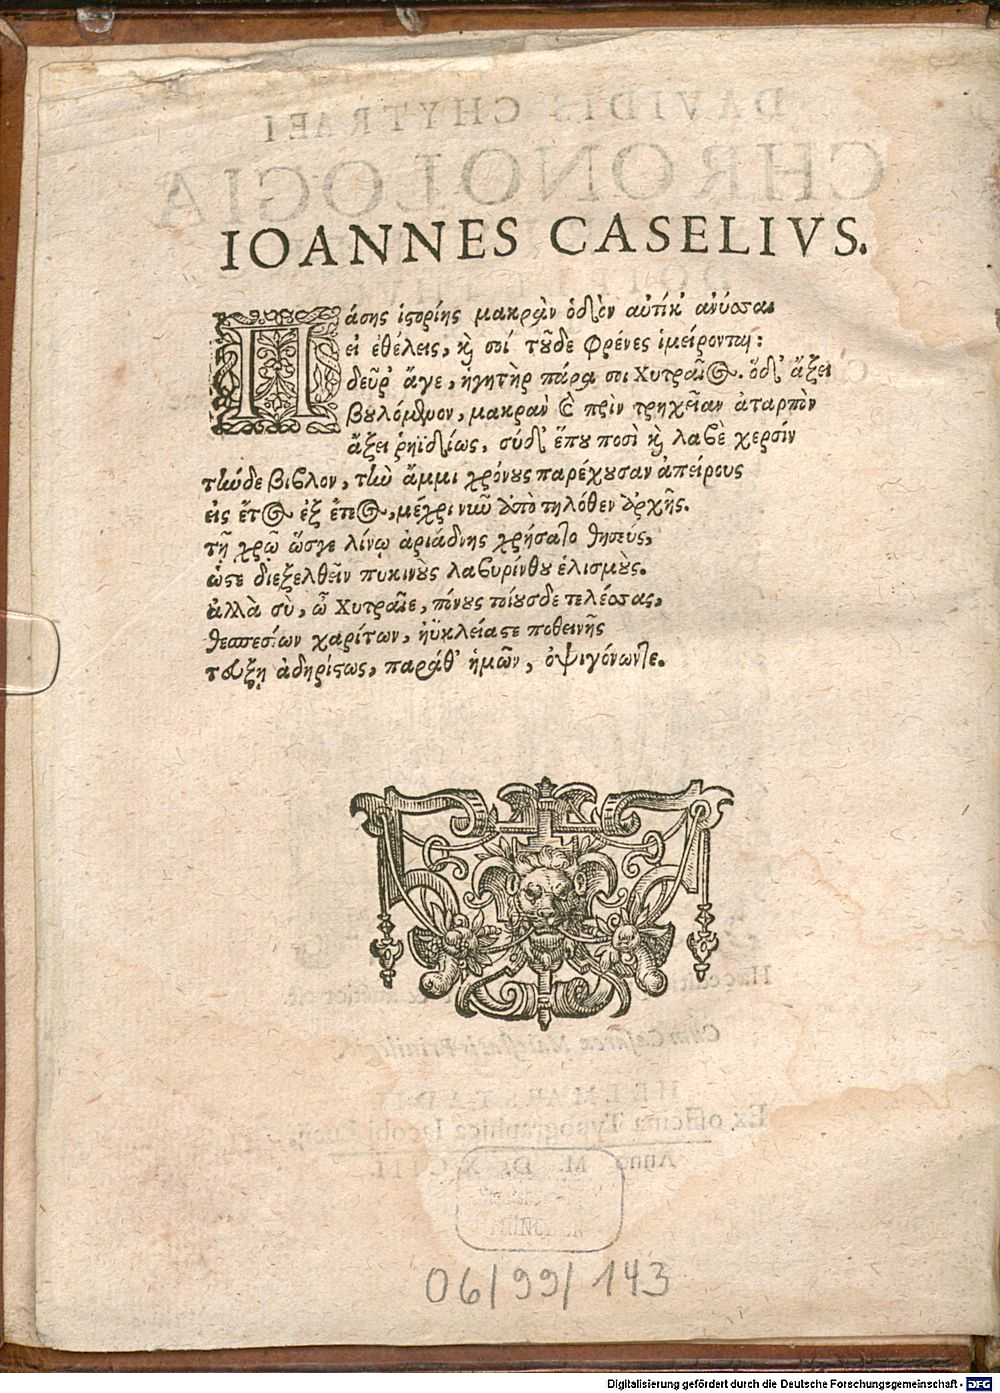 IOANNES CASELIVS.
Πάσης ἱστορίης μακρὰν ὁδὸν αὐτίκ' ἀνύσσαι
εἰ ἐθέλεις, καὶ σοί τοῦδε φρένες ἱμείρονται:
δεῦρ' ἄγε, ἡγητὴρ πάρα σοι Χυτραῖος. ὅδ' ἄξει
βουλόμενον, μακρὰν καὶ πρὶν τρηχεῖαν ἀταρπὸν
ἄξει ῥηϊδίως, σύδ' ἕπου ποσὶ καὶ λαβὲ χερσίν
τήνδε βίβλον, τὴν ἄμμι χρόνους παρέχουσαν ἀπείρους
εἰς ἔτος ἐξ ἔτεος, μέχρι νῦν ἀπὸ τηλόθεν ἀρχῆς.
τῇ χρῶ ὥσγε λίνῳ ἀριάδνης χρήσατο θησεύς,
ὥστε διεξελθεῖν πυκινοὺς λαβυρίνθου ἑλισμούς.
ἀλλὰ σὺ, ὦ Χυτραῖε, πόνους τοίουσδε τελέσσας,
θεσπεσίων χαρίτων, ἠϋκλείας τε ποθεινῆς
τεύξῃ ἀδηρίτως, παράθ' ἡμῶν, ὀψιγόνων τε.
MÜNCHEN
06/99/143
Digitalisierung gefördert durch die Deutsche Forschungsgemeinschaft - DFG